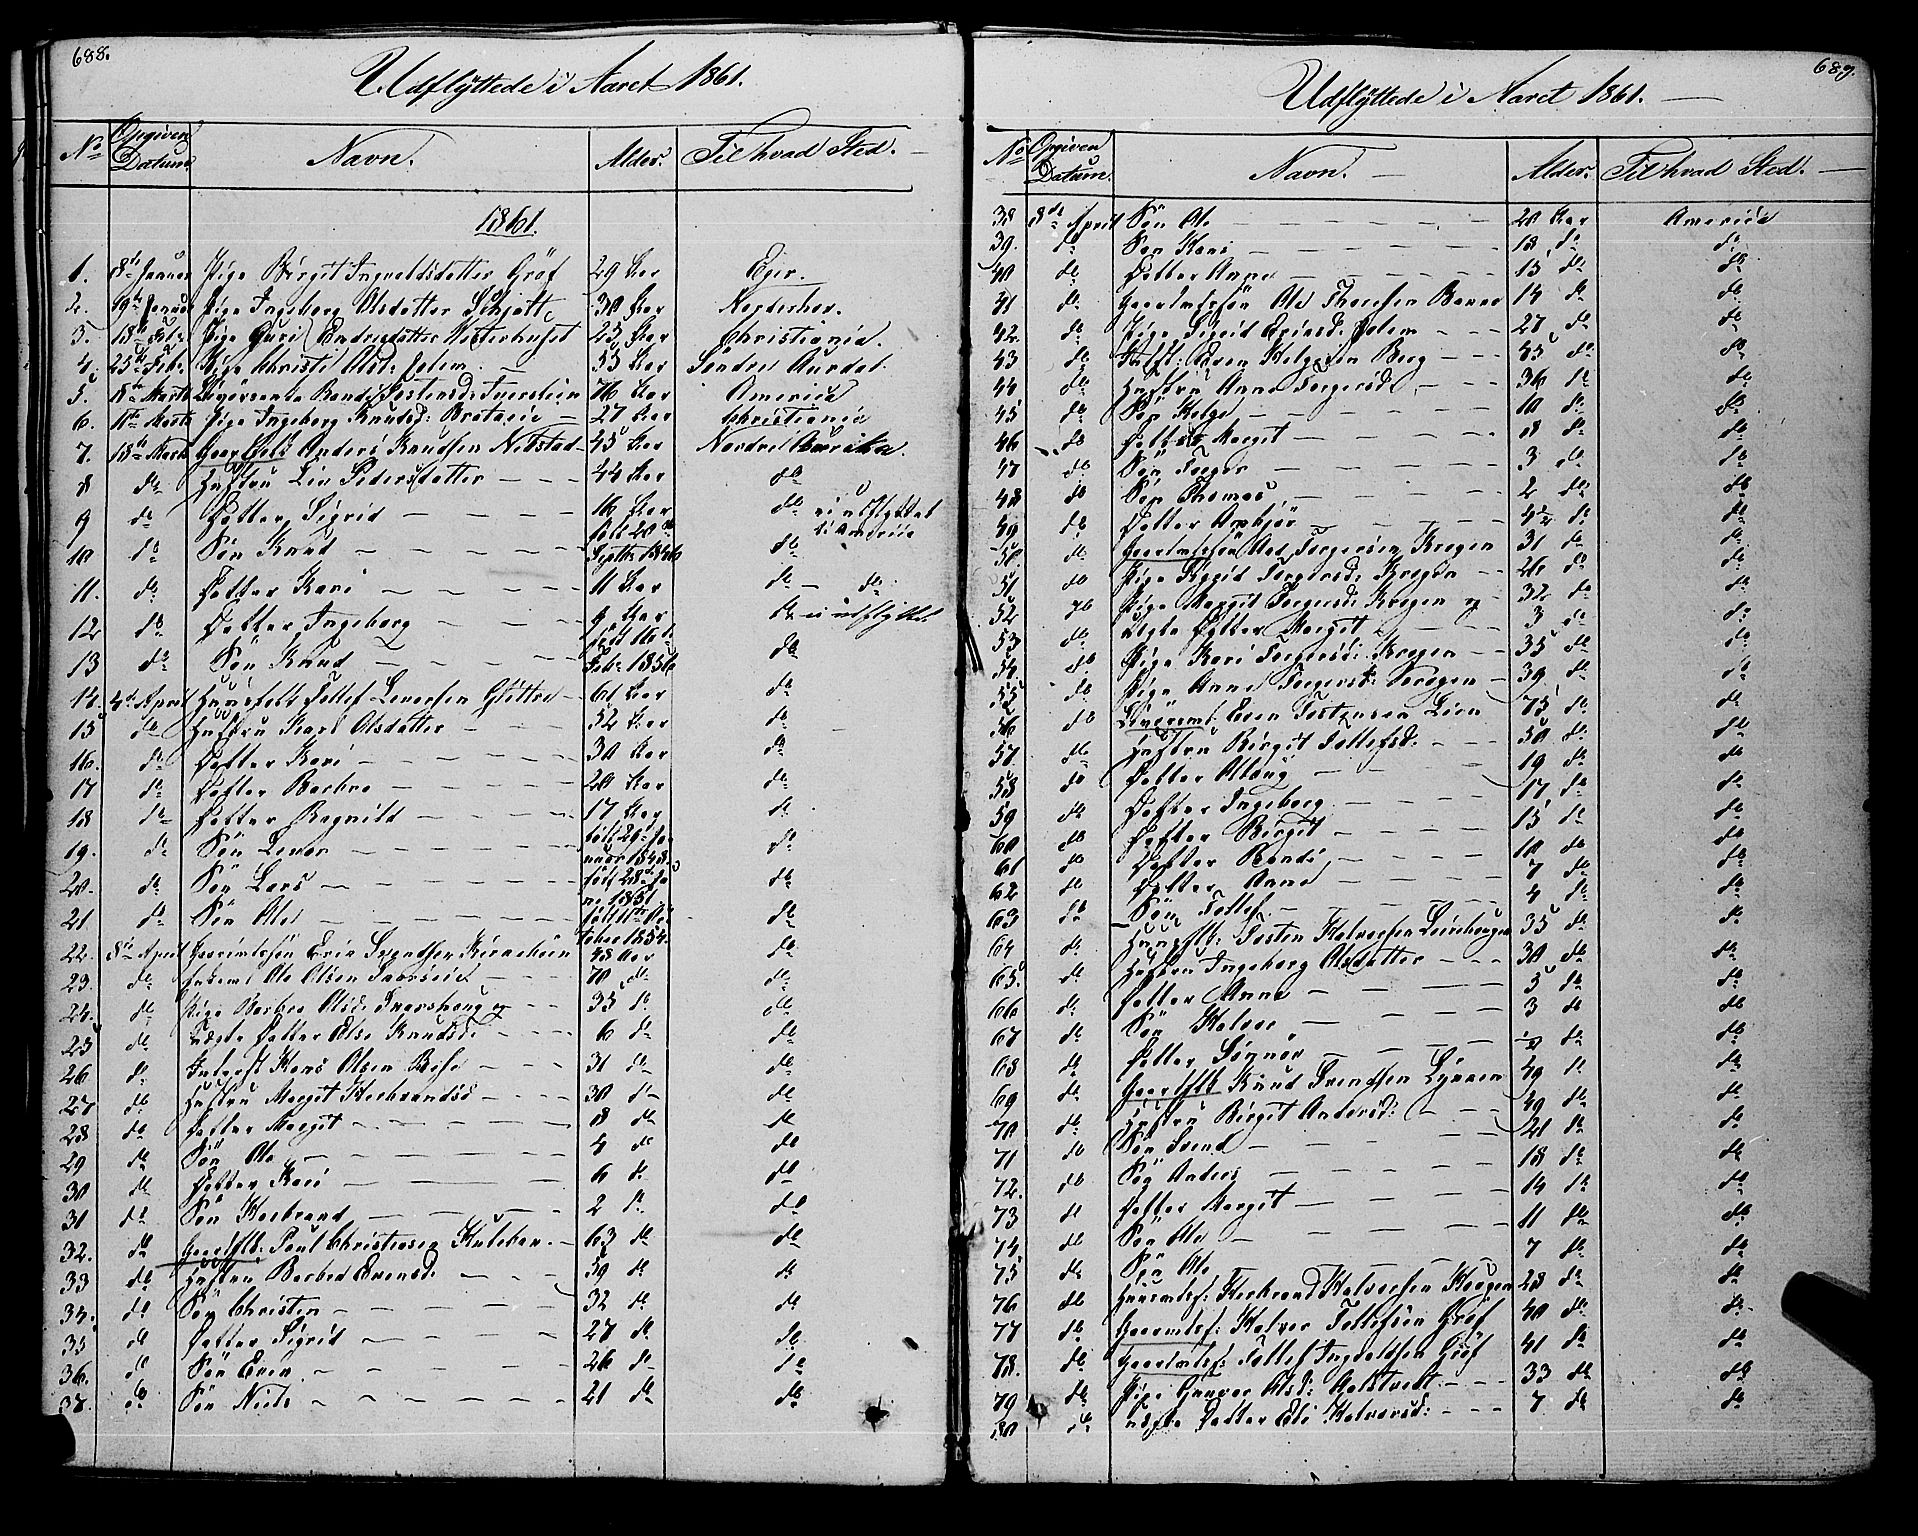 688.
Udflyttede i Aaret 1861.
No Opgiven Datum. Navn. Alder. Til hvad Sted.
1861.
1. 8de Januar Pige Birgit Ingvaldsdatter Gröf 29 Aar Eger.
2. 19de Januar Pige Ingeborg Olsdatter 30 Aar
3. 18de Febr. Pige Guri Endresdatter 23 Aar Christiania.
4. 25de Febr. Pige Christi Olsd: 53 Aar Söndre Aurdal.
5. Marts 76 Aar America
6. Marts Pige Ingeborg Knudsd: 27 Aar Christiania
7. 18de Marts Anders Knudsen Nibstad 45 Aar Nordre Amerika.
8 do Hustru Liv Pedersdatter 44 Aar do
9 do Datter Sigrid 16 Aar do ei udflyttet til America
10 do Sön Knud född 20de Septbr 1846 do
11. do Datter Kari 11 Aar do do
12 do Datter Ingeborg 9 Aar do ei udflyttet
13 do Sön Knud född 16de Febr 1856 do
14. 4de April Tollef 61 Aar do
15 do Hustru Kari Olsdatter 52 Aar do
16. do Datter Kari 30 Aar do
17 do Datter Barbro 20 Aar do
18 do Datter Ragnild 17 Aar do
19. do Sön född 29 Januar 1848. do
20. do Sön Lars född 28de 1851 do
21. do Sön Ole född 11te 1854. do
22. 8de April Erik Svendsen 48 Aar do
23. do Ole Olsen 70 do do
24. do Pige Barbro Olsd: 35 do do
25 do ægte Datter Olse Knudsd: 6 do do
26 do Hans Olsen 31 do do
27 do Hustru Margit Herbrandsd 30 do do
28 do Datter Margit 8 do do
29 do Sön Ole 4 do do
30 do Datter Kari 6 do do
31 do Sön Herbrand 2 do do
32. do Paul Christensen 63 do do
33 do Hustru Barbro Evensd. 59 do do
34. do Sön Christen 32 do do
35 do Datter Sigrid 27 do do
36. do Sön Even 26 do do
37. do Sön Niels 21 do do
689.
Udflyttede i Aaret 1861.
No Opgiven Datum. Navn. Alder. Til hvad Sted.
38 8de April Sön Ole 20 Aar America
39. do Sön Hans 18 do do
40 do Datter Anne 15 do do
41 do Ole 14 do do
42. do Pige Sigrid 27 do do
43 do Even Helgesen Berg 45 do do
44 do Hustru Anne Torgersd: 36 do do
45 do Sön Helge 10 do do
46 do Datter Margit 8 do do
47 do Sön Torger 3 do do
48 do Sön Thomas 2 do do
49 do Datter do do
50. do Torgersen Kragen 31 do do
51 do Pige Sigrid Torgersd: Kragen 26 do do
52 do Pige Margit Torgersd: Kragen 32 do do
53 do Datter Margit 3 do do
54 do Pige Kari Torgersd: Kragen 35 do do
55 do Pige Anne Torgersd: Kragen 39 do do
56 do Even Tostensen Lien 75 do do
57. do Hustru Birgit Tollefsd: 50 do do
58 do Datter 19 do do
59 do Datter Ingeborg 17 do do
60 do Datter Birgit 15 do do
61 do Datter Randi 10 do do
62 do Datter Anne 7 do do
63 do Sön Tollef 4 do do
64 do Tosten Halvorsen 35 do do
65. do Hustru Ingeborg Olsdatter 30 do do
66 do Datter Anne 5 do do
67 do Sön Halvor 3 do do
68 do Datter Sönnöv ½ do do
69 do Knud Svendsen 49 do do
70 do Hustru Birgit Andersd: 49 do do
71 do Sön Svend 21 do do
72. do Sön Anders 18 do do
73 do Datter Margit 14 do do
74. do Sön Ole 11 do do
75 do Sön Ole 7 do do
76 do Herbrand Halvorsen Haugen 28 do do
77 do Halvor Tollefsen Gröf 40 do do
78. do Tollef Ingvaldsen Gröf 41 do do
79 do Pige Gunvor Olsd: 33 do do
80 do Datter Eli Halvorsd: 7 do do